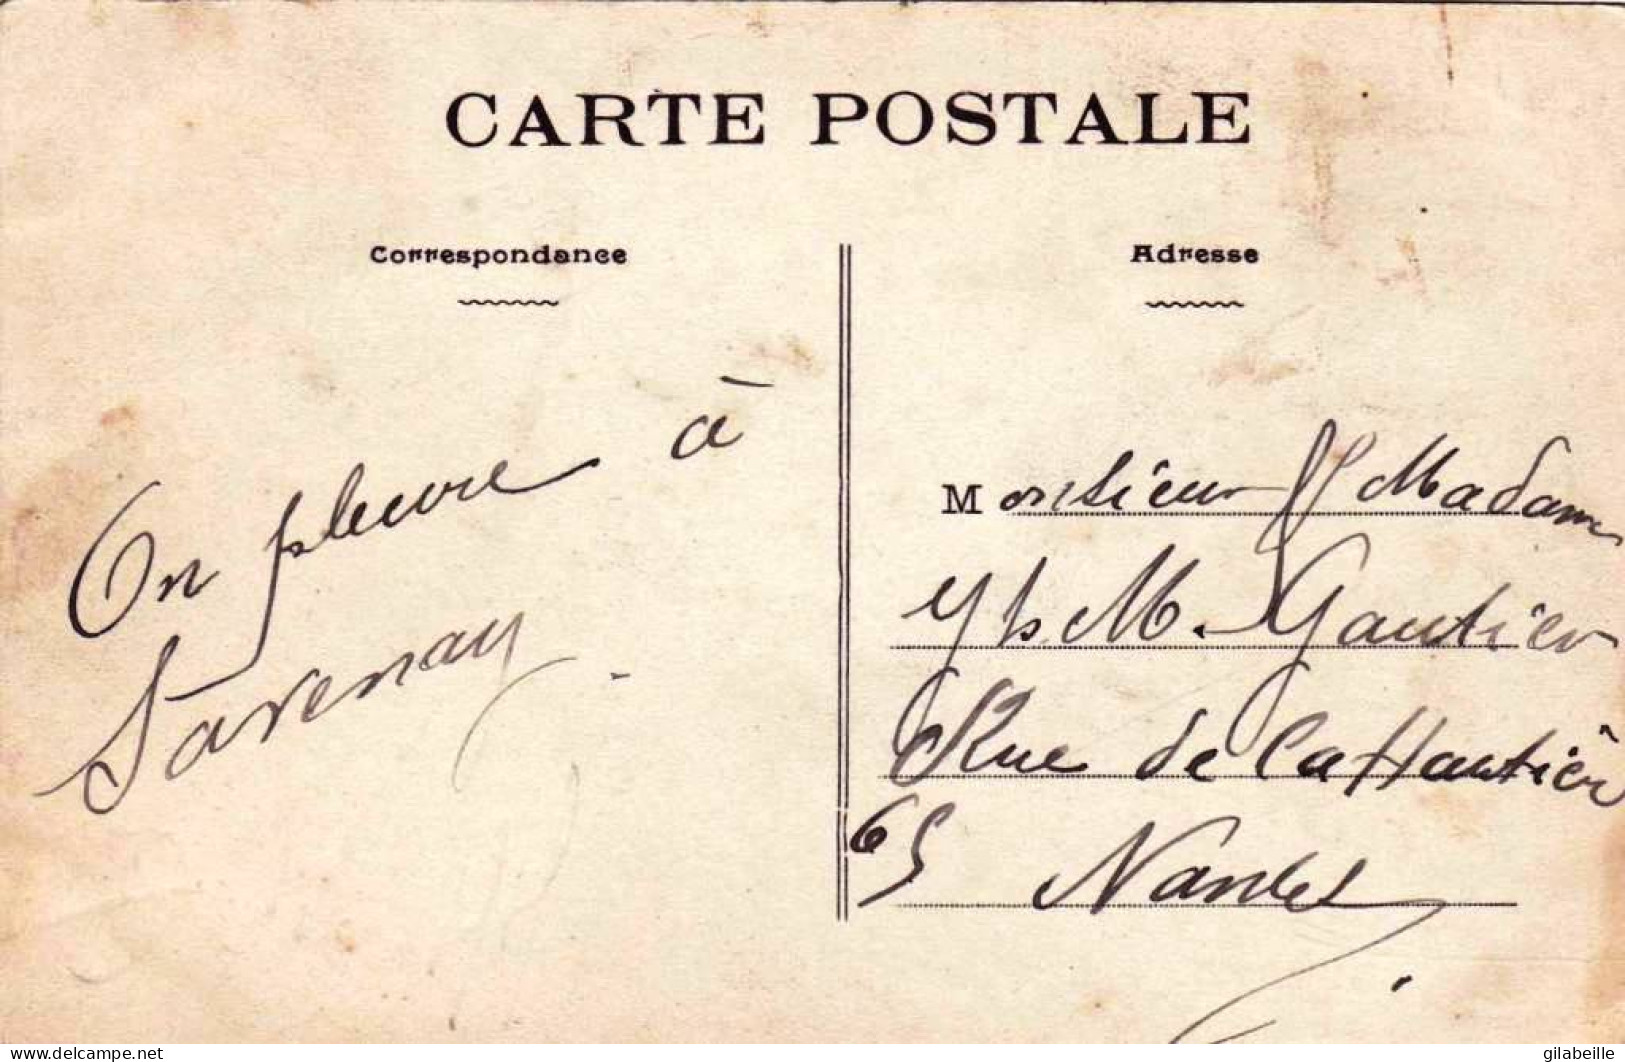 CARTE POSTALE
Correspondance
On pleure à
Savenay
Adresse
Monsieur & Madame
M. Gautier
Rue de la Hautière
65 Nantes
www.delcampe.net
gilabeille